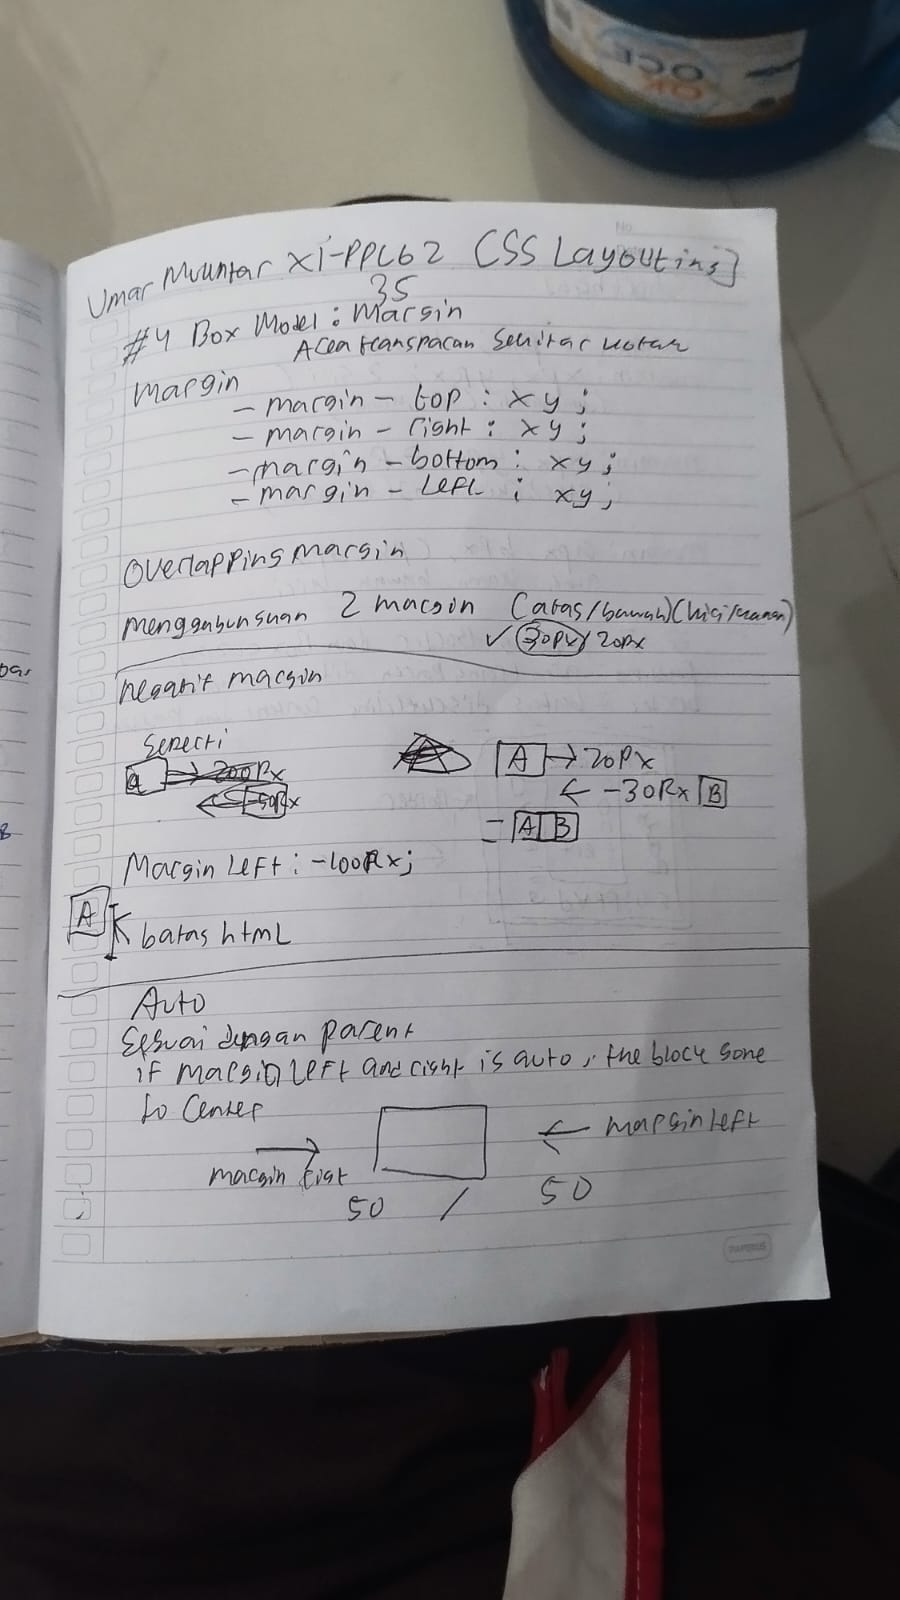 OK
OCE
No
Umar Muuntar XI-PPLG 2 CSS Layouting]
35
#4 Box Model : Margin
Area transparan Sekitar kotak
Margin
- margin - top : xy ;
- margin - right : xy ;
- margin - bottom : xy ;
- margin - Left : xy ;
Overlapping margin
menggabungkan 2 margin (atas/bawah)(kiri/kanan)
✓ 30px / 20px
negatif margin
Seperti
a → 200Px
← -50Px
A → 20Px
← -30Px B
= A B
Margin Left : -100Px;
A
batas html
Auto
Sesuai dengan parent
if margin left and right is auto, the block gone
to Center
← margin left
margin right
50 / 50
PAPERLINE